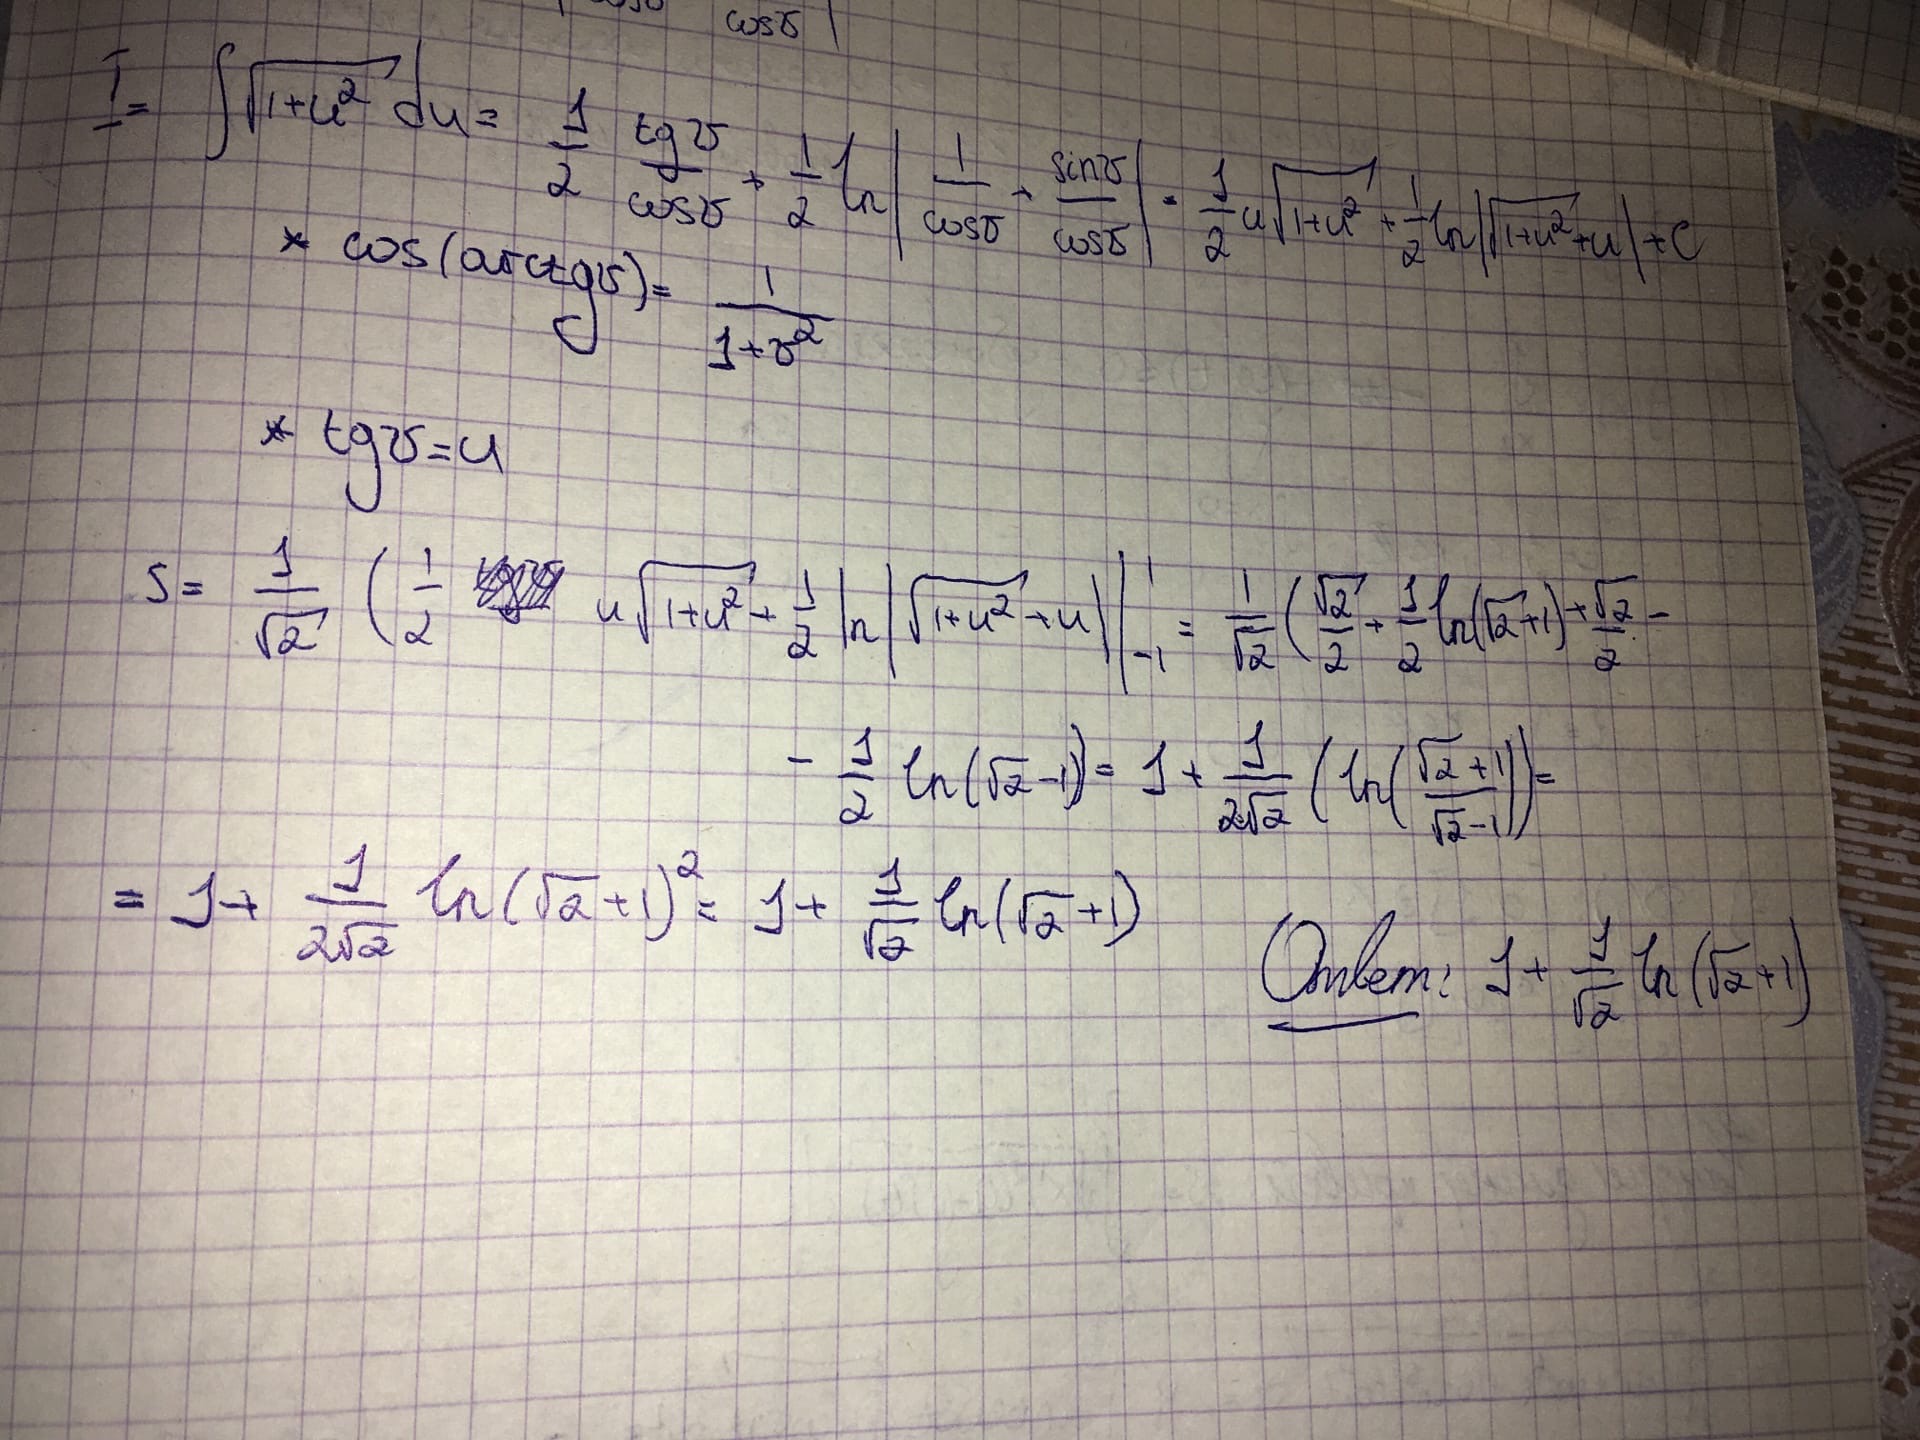 cosv |
I = ∫√(1+u²) du = 1/2 tgv/cosv + 1/2 ln|1/cosv + sinv/cosv| = 1/2 u√(1+u²) + 1/2 ln|√(1+u²) + u| + C
* cos(arctgv) = 1/(1+v²)
* tgv = u
S = 1/√2 (1/2 u√(1+u²) + 1/2 ln|√(1+u²) + u| |₋₁¹ = 1/√2 (√2/2 + 1/2 ln(√2+1) + √2/2 -
- 1/2 ln(√2-1)) = 1 + 1/(2√2) (ln((√2+1)/(√2-1))) =
= 1 + 1/(2√2) ln(√2+1)² = 1 + 1/√2 ln(√2+1)
Ответ: 1 + 1/√2 ln(√2+1)